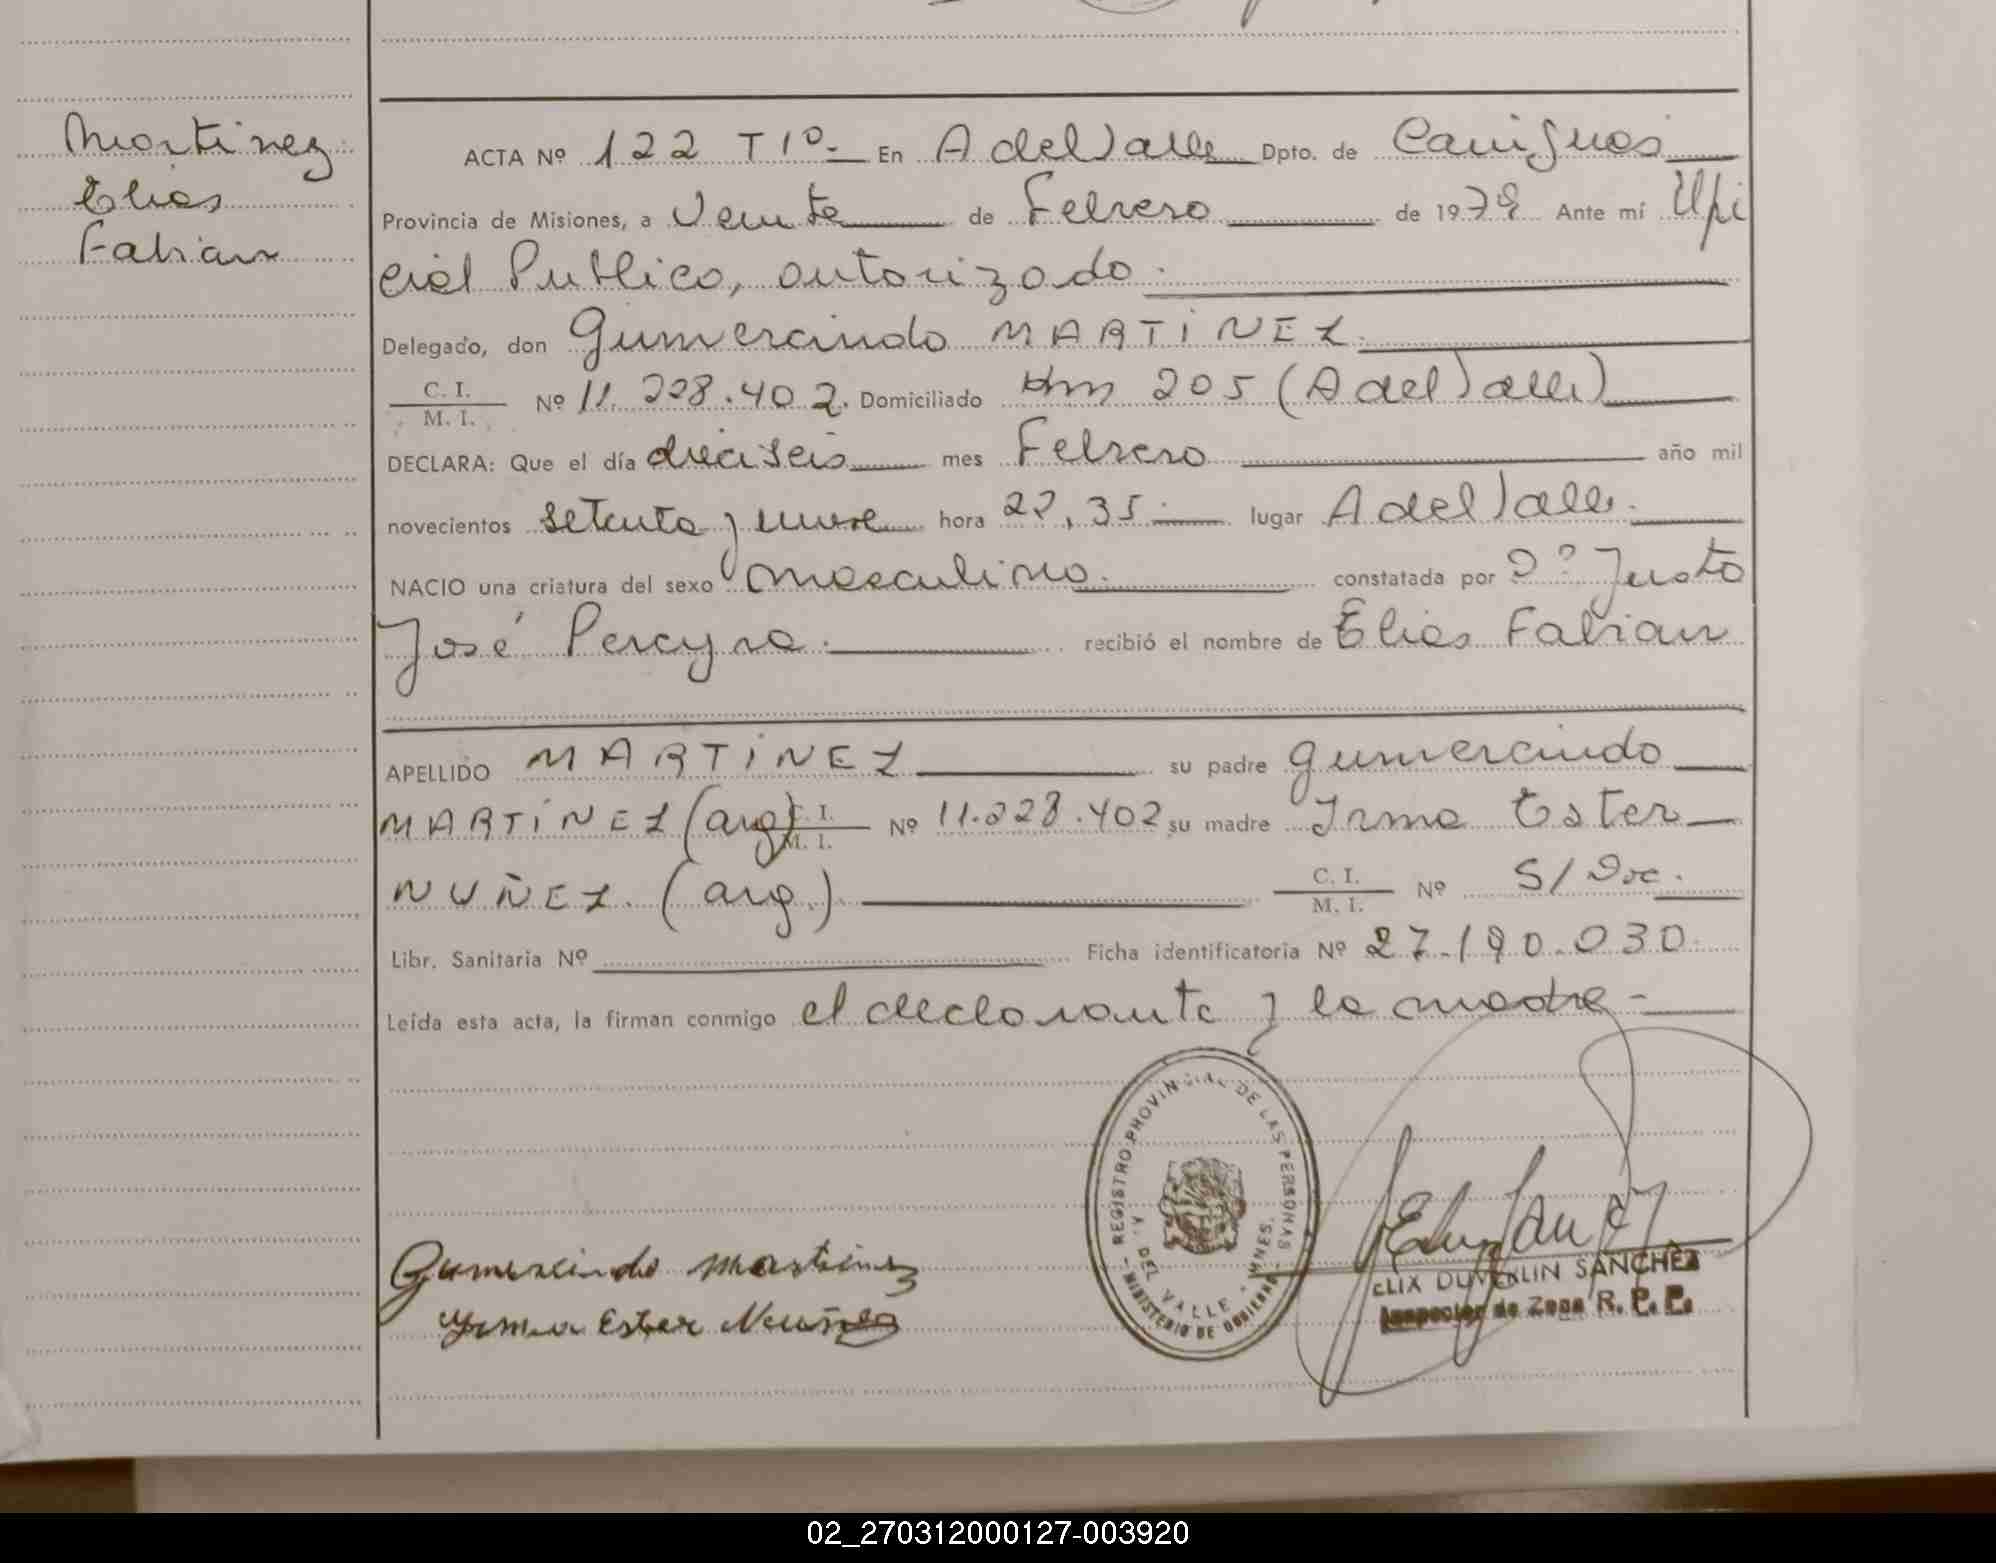 Martinez
Elias
Fabian
ACTA Nº 122 T1º- En A del Valle Dpto. de Cainguas
Provincia de Misiones, a Veinte de Febrero de 1979 Ante mí Ofi
cial Publico, autorizado.
Delegado, don Gumercindo MARTINEZ
C. I.
M. I. Nº 11.228.402. Domiciliado Km 205 (A del Valle)
DECLARA: Que el día dieciseis mes Febrero año mil
novecientos setenta y nueve hora 22,35 lugar A del Valle.
NACIO una criatura del sexo masculino. constatada por Dº Justo
José Pereyra. recibió el nombre de Elias Fabian
APELLIDO MARTINEZ su padre Gumercindo
MARTÍNEZ (arg) C. I.
M. I. Nº 11.228.402 su madre Irma Ester
NUÑEZ. (arg.) C. I.
M. I. Nº S/Doc.
Libr. Sanitaria Nº Ficha identificatoria Nº 27.190.030.
Leída esta acta, la firman conmigo el declarante y la madre-
REGISTRO PROVINCIAL DE LAS PERSONAS
A. DEL VALLE - MNES.
- MINISTERIO DE GOBIERNO -
Gumercindo Martinez
Yrma Ester Nuñez
ELIX DUVERLIN SANCHEZ
Inspector de Zona R. P. P.
02_270312000127-003920